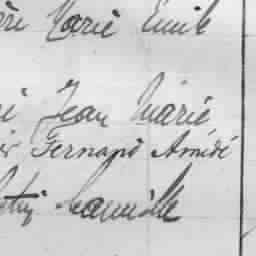 Marie Emile
Jean Marie
Fernand Amédé
Camille